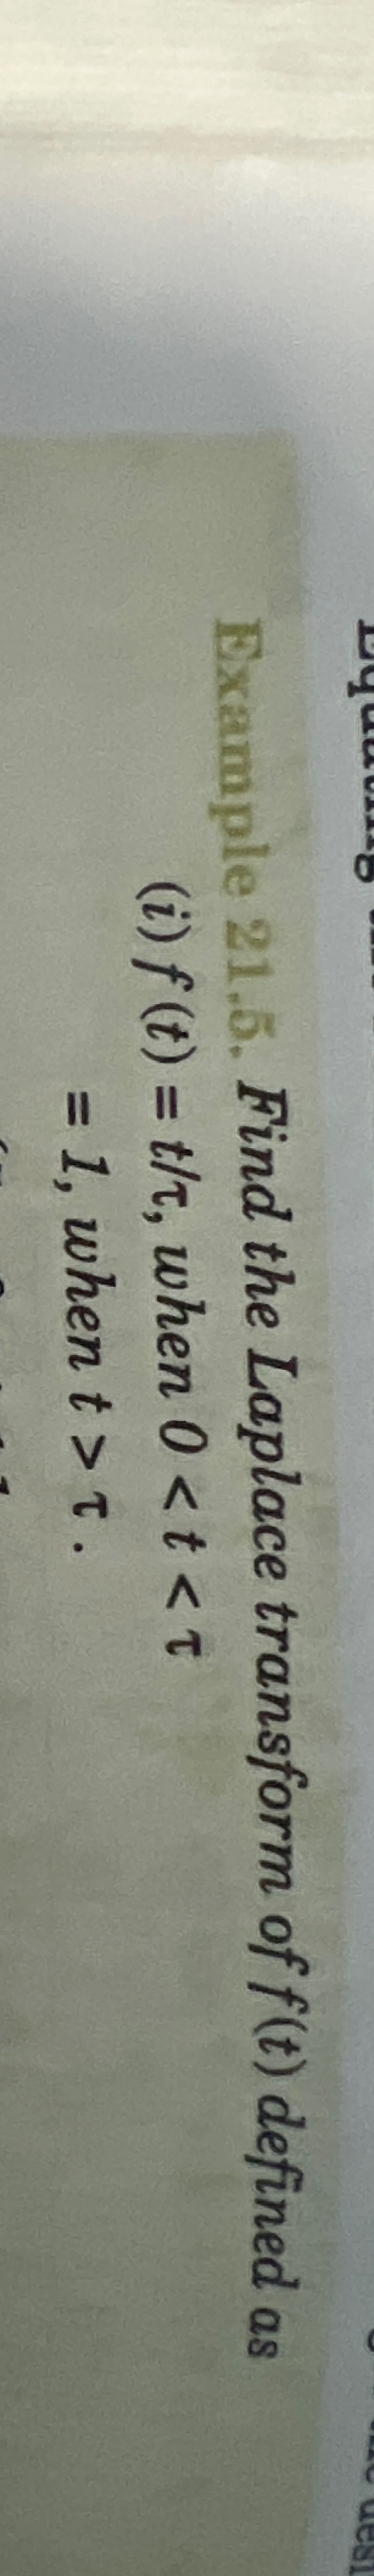 Example 21.5. Find the Laplace transform of f(t) defined as
(i) f (t) = t/τ, when 0 < t < τ
= 1, when t > τ .